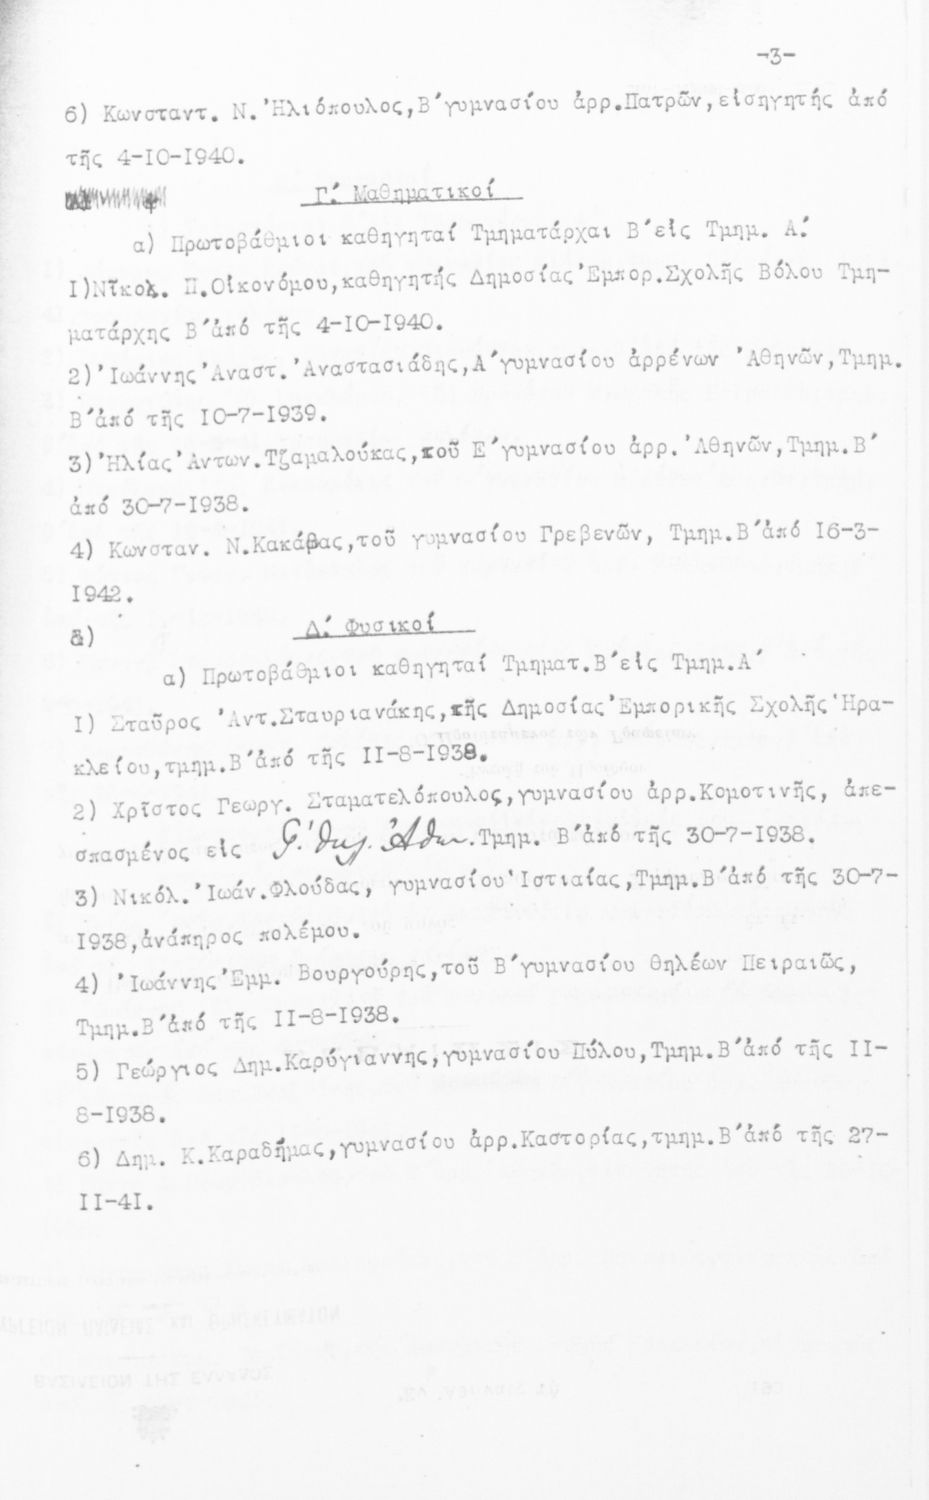 -3-
6) Κωνσταντ. Ν. Ἠλιόπουλος,Β΄γυμνασίου ἀρρ.Πατρῶν,εἰσηγητής ἀπό
τῆς 4-ΙΟ-Ι940.
Γ΄. Μαθηματικοί
α) Πρωτοβάθμιοι καθηγηταί Τμηματάρχαι Β΄εἰς Τμημ. Α΄.
Ι)Νῖκολ. Π.Οἰκονόμου,καθηγητής Δημοσίας Ἐμπορ.Σχολῆς Βόλου Τμη-
ματάρχης Β΄ἀπό τῆς 4-ΙΟ-Ι940.
2)Ἰωάννης Ἀναστ. Ἀναστασιάδης,Α΄γυμνασίου ἀρρένων Ἀθηνῶν,Τμημ.
Β΄ἀπό τῆς ΙΟ-7-Ι939.
3)Ἠλίας Ἀντων.Τζαμαλούκας,τοῦ Ε΄γυμνασίου ἀρρ. Ἀθηνῶν,Τμημ.Β΄
ἀπό 30-7-Ι938.
4) Κωνσταν. Ν.Κακάβας,τοῦ γυμνασίου Γρεβενῶν, Τμημ.Β΄ἀπό Ι6-3-
Ι942.
Δ΄. Φυσικοί
α) Πρωτοβάθμιοι καθηγηταί Τμηματ.Β΄εἰς Τμημ.Α΄
Ι) Σταῦρος Ἀντ.Σταυριανάκης,τῆς Δημοσίας Ἐμπορικῆς Σχολῆς Ἡρα-
κλείου,τμημ.Β΄ἀπό τῆς ΙΙ-8-Ι938.
2) Χρῖστος Γεωργ. Σταματελόπουλος,γυμνασίου ἀρρ.Κομοτινῆς, ἀπε-
σπασμένος εἰς Γ΄ θηλ. Ἀθην.Τμημ. Β΄ἀπό τῆς 30-7-Ι938.
3) Νικόλ. Ἰωάν.Φλούδας, γυμνασίου Ἱστιαίας,Τμημ.Β΄ἀπό τῆς 30-7-
Ι938,ἀνάπηρος πολέμου.
4) Ἰωάννης Ἐμμ. Βουργούρης,τοῦ Β΄γυμνασίου θηλέων Πειραιῶς,
Τμημ.Β΄ἀπό τῆς ΙΙ-8-Ι938.
5) Γεώργιος Δημ.Καρύγιαννης,γυμνασίου Πύλου,Τμημ.Β΄ἀπό τῆς ΙΙ-
8-Ι938.
6) Δημ. Κ.Καραδήμας,γυμνασίου ἀρρ.Καστορίας,τμημ.Β΄ἀπό τῆς 27-
ΙΙ-4Ι.